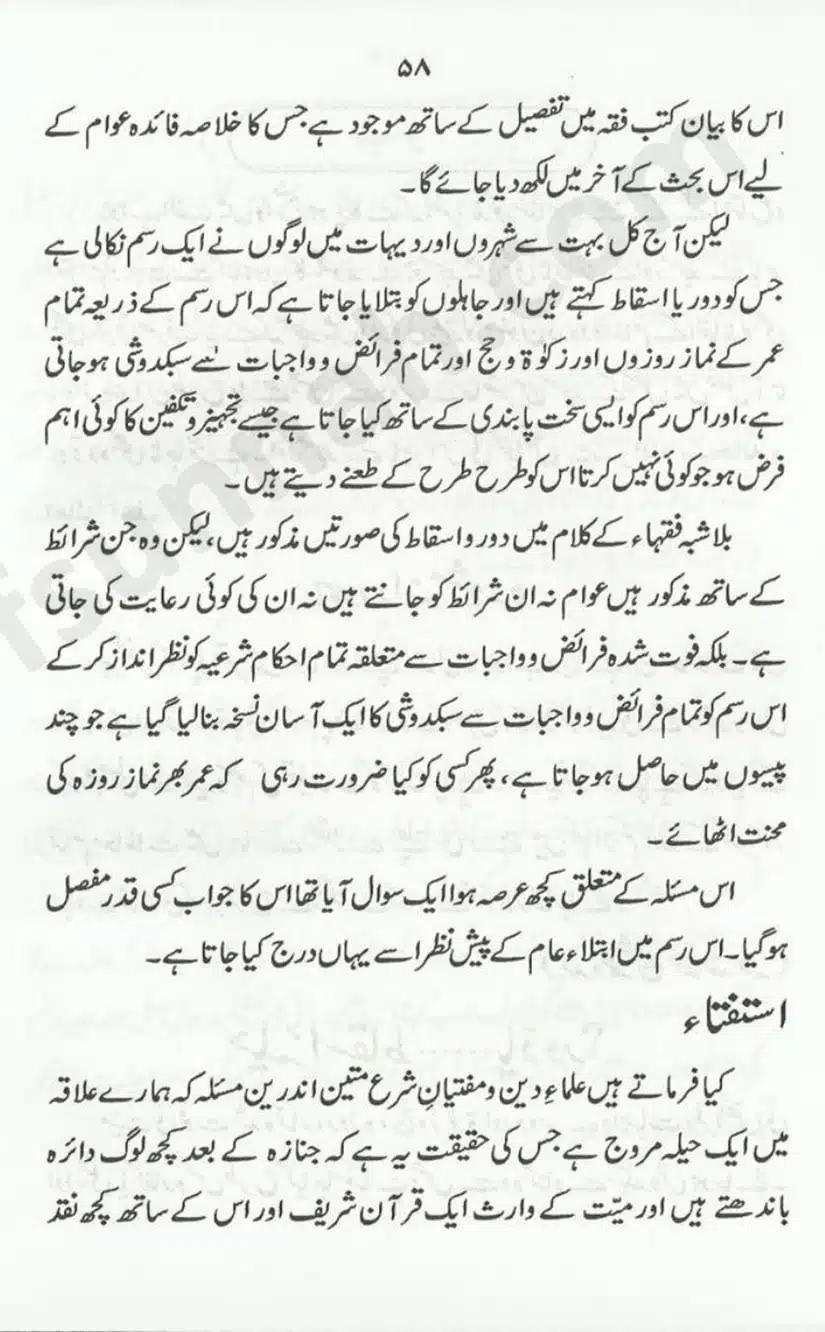 ۵۸
اس کا بیان کتب فقہ میں تفصیل کے ساتھ موجود ہے جس کا خلاصہ فائدہ عوام کے
لیے اس بحث کے آخر میں لکھ دیا جائے گا۔
لیکن آج کل بہت سے شہروں اور دیہات میں لوگوں نے ایک رسم نکالی ہے
جس کو دور یا اسقاط کہتے ہیں اور جاہلوں کو بتلایا جاتا ہے کہ اس رسم کے ذریعہ تمام
عمر کے نماز روزوں اور زکوٰۃ و حج اور تمام فرائض و واجبات سے سبکدوشی ہو جاتی
ہے، اور اس رسم کو ایسی سخت پابندی کے ساتھ کیا جاتا ہے جیسے تجہیز و تکفین کا کوئی اہم
فرض ہو جو کوئی نہیں کرتا اس کو طرح طرح کے طعنے دیتے ہیں۔
بلاشبہ فقہاء کے کلام میں دور و اسقاط کی صورتیں مذکور ہیں، لیکن وہ جن شرائط
کے ساتھ مذکور ہیں عوام نہ ان شرائط کو جانتے ہیں نہ ان کی کوئی رعایت کی جاتی
ہے۔ بلکہ فوت شدہ فرائض و واجبات سے متعلقہ تمام احکام شرعیہ کو نظر انداز کر کے
اس رسم کو تمام فرائض و واجبات سے سبکدوشی کا ایک آسان نسخہ بنا لیا گیا ہے جو چند
پیسوں میں حاصل ہو جاتا ہے، پھر کسی کو کیا ضرورت رہی کہ عمر بھر نماز روزہ کی
محنت اٹھائے۔
اس مسئلہ کے متعلق کچھ عرصہ ہوا ایک سوال آیا تھا اس کا جواب کسی قدر مفصل
ہو گیا۔ اس رسم میں ابتلاء عام کے پیش نظر اسے یہاں درج کیا جاتا ہے۔
استفتاء
کیا فرماتے ہیں علماءِ دین و مفتیانِ شرع متین اندریں مسئلہ کہ ہمارے علاقہ
میں ایک حیلہ مروج ہے جس کی حقیقت یہ ہے کہ جنازہ کے بعد کچھ لوگ دائرہ
باندھتے ہیں اور میّت کے وارث ایک قرآن شریف اور اس کے ساتھ کچھ نقد